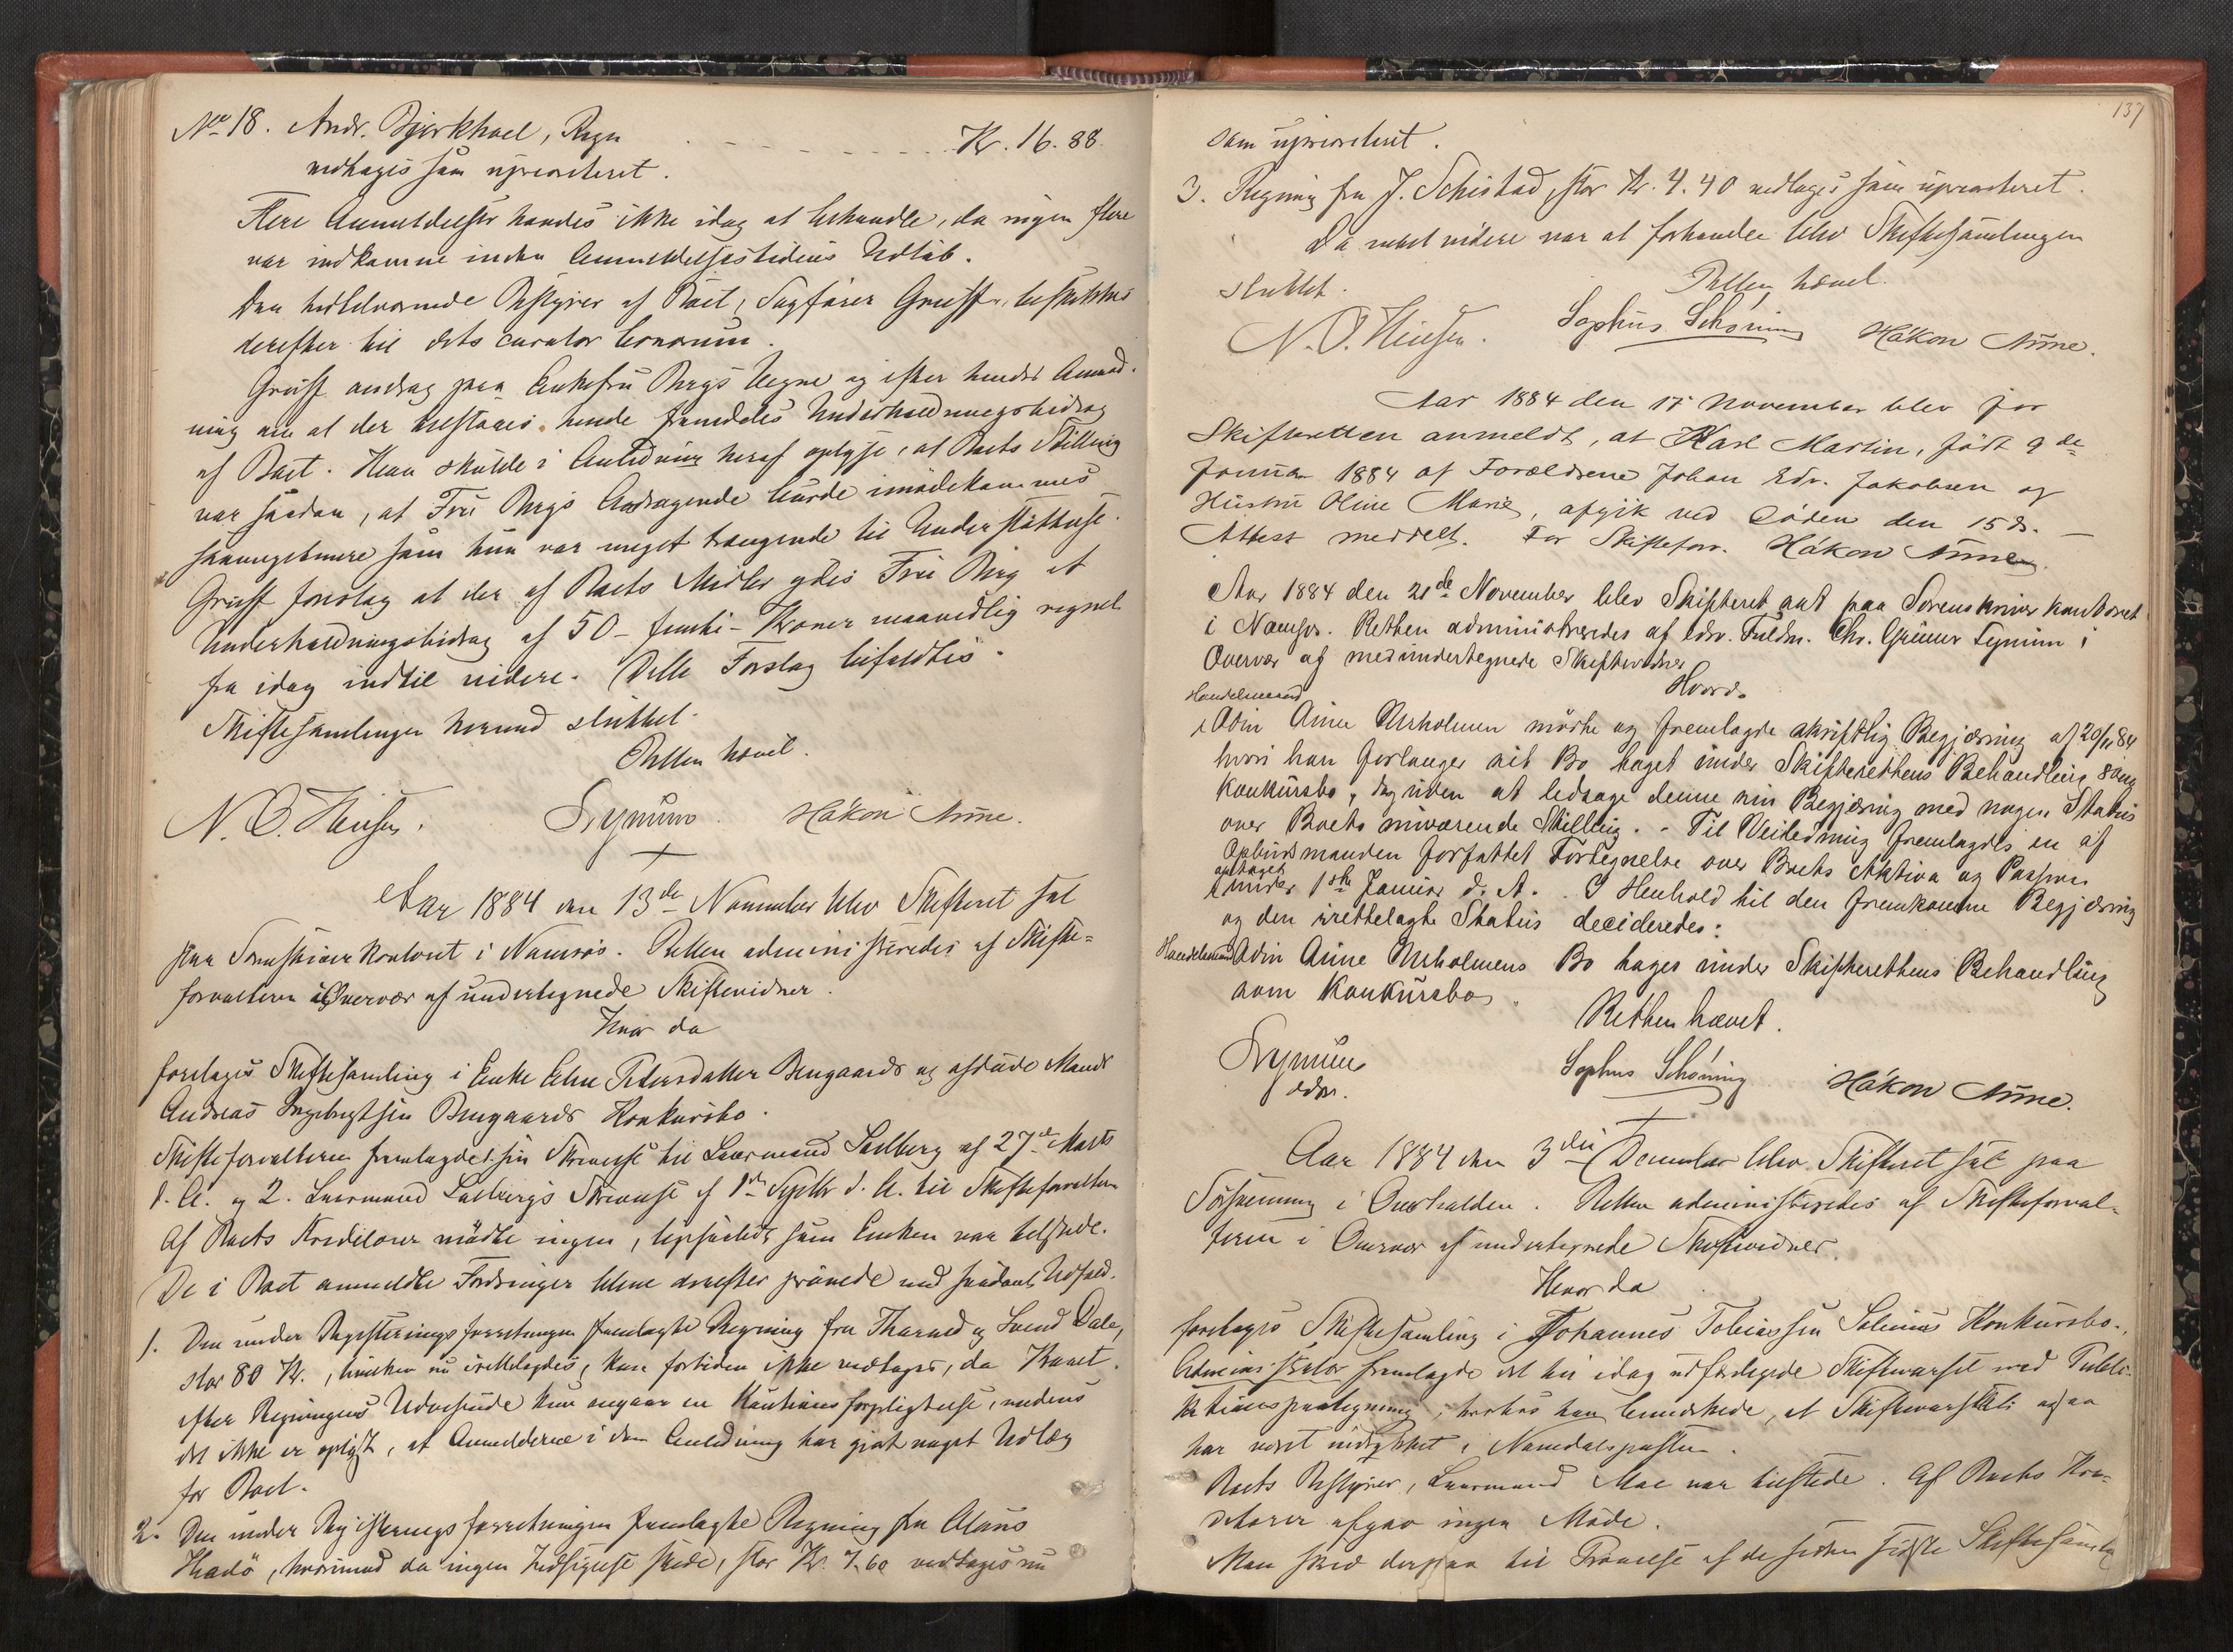 No 18. Andr. Bjørkhoel, Regn. Kr. 16.88
vedtages som uprioriteret.
Flere Anmeldelser havdes ikke idag at behandle, da ingen flere
var indkomne inden Anmeldelsestidens Udløb.
Den hidtilværende Bestyrer af Boet, Sagfører Gruff beskikkes
derefter til dets curator bonorum.
Gruff androg paa Enkefru Bergs Vegne og efter hendes Anmod-
ning om at der tilstaaes hende fremdeles Underholdningsbidrag
af Boet. Han skulde i Anledning heraf oplyse, at Boets Stilling
var saadan, at Fru Bergs Andragende burde imødekommes
saameget mere som hun var meget trængende til Understøttelse.
Gruff foreslog at der af Boets Midler ydes Fru Berg et
Underholdningsbidrag af 50 - femti - Kroner maanedlig regnet
fra idag indtil videre. Dette Forslag bifaldtes.
Skiftesamlingen hermed sluttet.
Retten hævet.
N. O. Hensen. Lysmun. Håkon Anne.
Aar 1884 den 13de November blev Skifteret sat
paa Sorenskriverkontoret i Namsos. Retten administreredes af Skifte-
forvalteren i Overvær af undertegnede Skiftevidner.
Hvor da
foretoges Skiftesamling i Enke Petersdatter Bengaards og afdøde Mands
Andreas Ingebrigtsen Bengaards Konkursbo.
Skifteforvalteren fremlagde sin Skrivelse til Lensmand Sælberg af 27de Marts
d. A. og 2. Lensmand Sælbergs Skrivelse af 1ste Septbr d. A. til Skifteforvalteren
Af Boets Kreditorer mødte ingen, ligesaalidt som Enken var tilstede.
De i Boet anmeldte Fordringer bleve derefter prøvede med saadant Udfald.
1. Den under Registreringsforretningen fremlagte Regning fra Tharald og Svend Dale,
stor 80 Kr., hvilken nu irettelagdes, kan fortiden ikke vedtages, da Kravet
efter Regningens Udvisende kun angaar en Kautionsforpligtelse, medens
det ikke er oplyst, at Anmelderne i den Anledning har gjort noget Udlæg
for Boet.
2. Den under Registreringsforretningen fremlagte Regning fra Claus
Hadø, hvorimod da ingen Indsigelse skede, stor Kr. 7.60 vedtages nu
137
som uprioriteret.
3. Regning fra J. Schistad, stor Kr. 4.40 vedtages som uprioriteret.
Da intet videre var at forhandle blev Skiftesamlingen
sluttet. Retten hævet.
N. O. Hensen. Sophus Schøning Håkon Anne.
Aar 1884 den 17 November blev for
Skifteretten anmeldt, at Karl Martin, født 9de
Januar 1884 af Forældrene Johan Edv. Jakobsen og
Hustru Oline Marie, afgik ved Døden den 15 ds. —
Attest meddelt. For Skifteforv. Håkon Anne
Aar 1884 den 21de November blev Skifteret sat paa Sorenskriverkontoret
i Namsos. Retten administreredes af edsv. Fuldm. Chr. Grüner i
Overvær af medundertegnede Skiftevidner
Hvorda
Handelsmand
Odin Aune Urholmen mødte og fremlagde skriftlig Begjæring af 20/11 84
hvori han forlanger sit Bo taget under Skifterettens Behandling som
Konkursbo, dog uden at ledsage denne sin Begjæring med nogen Status
over Boets nuværende Stilling. - Til Veiledning fremlagdes en af
Opbudsmanden forfattet Fortegnelse over Boets Aktiva og Passiva
optaget
under 1ste Januar d. A. I Henhold til den fremkomne Begjæring
og den irettelagte Status decideredes:
Handelsmand Odin Aune Urholmens Bo tages under Skifterettens Behandling
som Konkursbo.
Retten hævet.
Lysmun Sophus Schøning Håkon Anne.
edsv.
Aar 1884 den 3die December blev Skifteret sat paa
i Overhalden. Retten administreredes af Skifteforval-
teren i Overvær af undertegnede Skiftevidner.
Hvor da
foretoges Skiftesamling i Johannes Tobiassen Konkursbo.
Administrator fremlagde det til idag udfærdigede Skiftevarsel med Publi-
kationspaategning, hvorhos han bemærkede, at Skiftevarslet ogsaa
har været indrykket i Namdalsposten.
Boets Bestyrer, Lensmand Moe var tilstede. Af Boets Kre-
ditorer afgav ingen Møde.
Man skred derpaa til Prøvelse af de siden sidste Skiftesamling